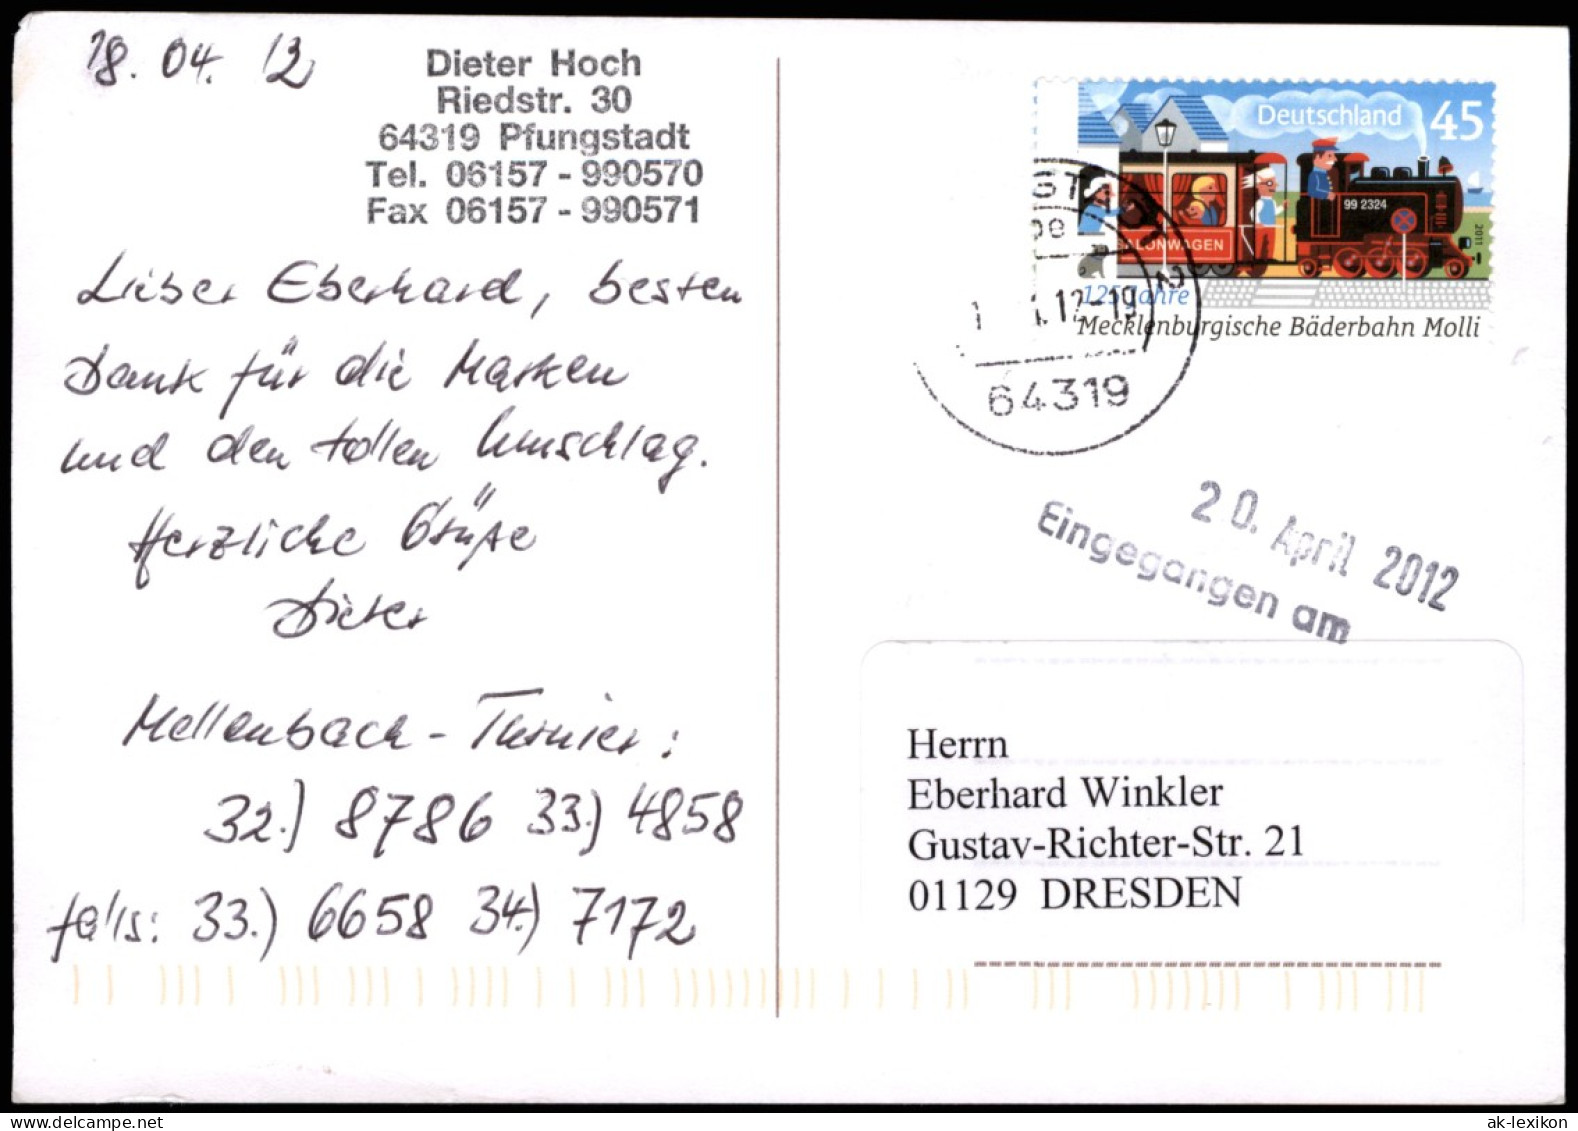 18. 04. 12
Dieter Hoch
Riedstr. 30
64319 Pfungstadt
Tel. 06157 - 990570
Fax 06157 - 990571
Lieber Eberhard, besten
Dank für die Marken
und den tollen Umschlag.
Herzliche Grüße
Dieter
Mellenbach - Turnier:
32.) 8786 33.) 4858
falls: 33.) 6658 34.) 7172
Deutschland 45
99 2324
SALONWAGEN
2011
125 Jahre
Mecklenburgische Bäderbahn Molli
GSTADT 2
.12-19
64319
20. April 2012
Eingegangen am
Herrn
Eberhard Winkler
Gustav-Richter-Str. 21
01129 DRESDEN
ak-lexikon